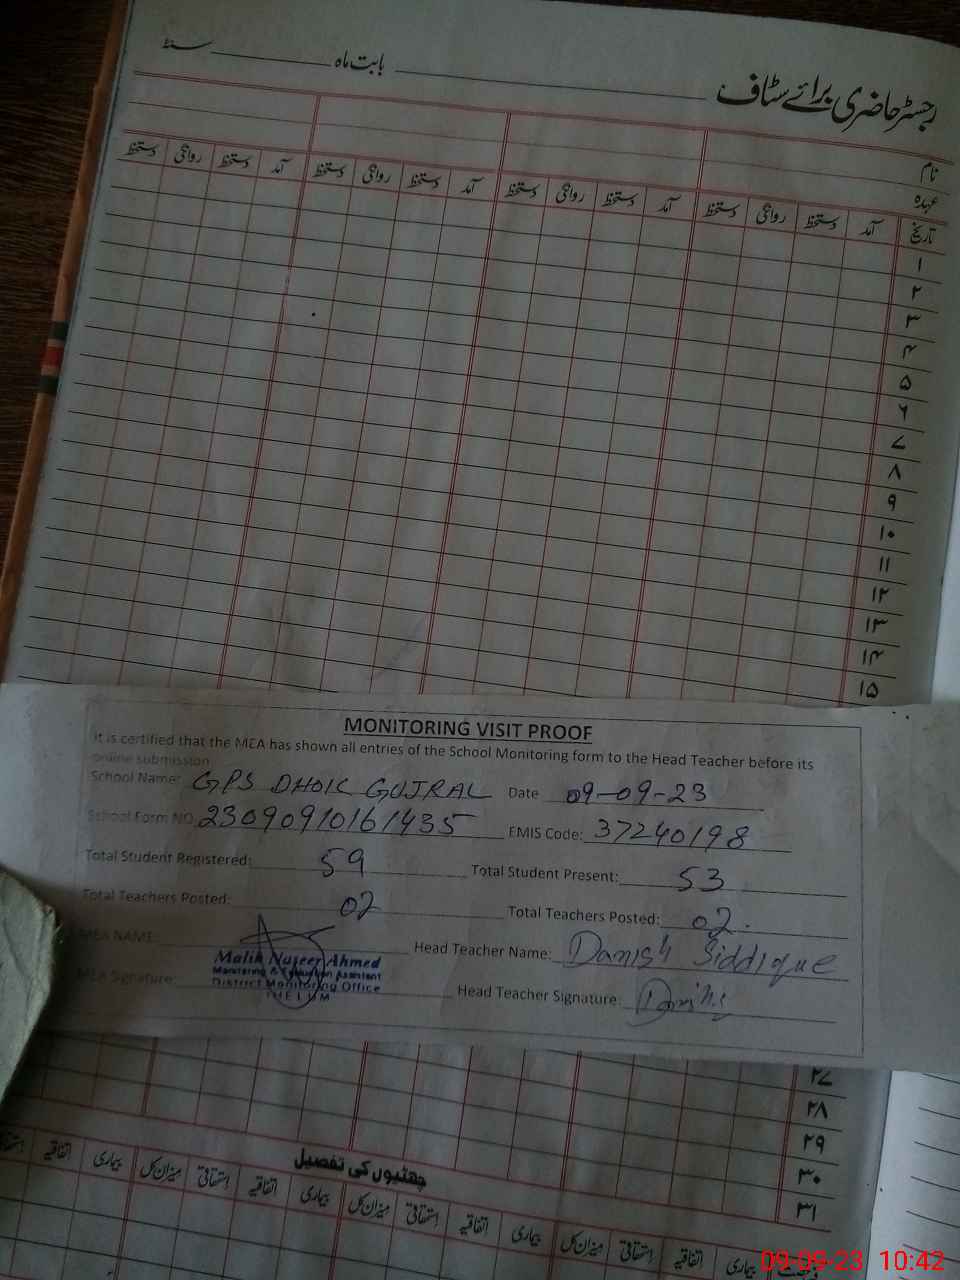 رجسٹر حاضری برائے سٹاف ــــــ بابت ماہ ــــــ سنہ ــــــ
نام
عہدہ
تاریخ آمد دستخط روانگی دستخط آمد دستخط روانگی دستخط آمد دستخط روانگی دستخط آمد دستخط روانگی دستخط
۱
۲
۳
۴
۵
۶
۷
۸
۹
۱۰
۱۱
۱۲
۱۳
۱۴
۱۵
MONITORING VISIT PROOF
It is certified that the MEA has shown all entries of the School Monitoring form to the Head Teacher before its
online submission
School Name: GPS DHOK GUJRAL Date 09-09-23
School Form NO. 23090910161435 EMIS Code: 37240198
Total Student Registered: 59 Total Student Present: 53
Total Teachers Posted: 02 Total Teachers Posted: 02.
MEA NAME: Head Teacher Name: Danish Siddique
Malik Naseer Ahmed
Monitoring & Evaluation Assistant
District Monitoring Office
JHELUM
MEA Signature: Head Teacher Signature: Danish
۲۷
۲۸
۲۹
۳۰
۳۱
چھٹیوں کی تفصیل
بیماری اتفاقیہ استحقاقی میزان کل بیماری اتفاقیہ استحقاقی میزان کل بیماری اتفاقیہ استحقاقی میزان کل بیماری اتفاقیہ
09-09-23 10:42